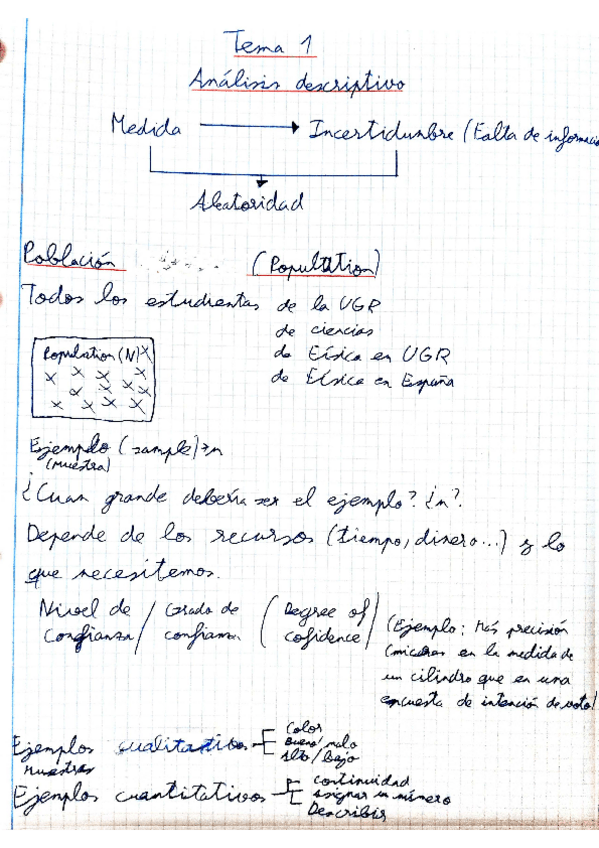 Tema 1
Análisis descriptivo
Medida → Incertidumbre (Falta de informació
Aleatoridad
Población (Population)
Todos los estudiantes de la UGR
de ciencias
de Física en UGR
de Física en España
Population (N)
Ejemplo (sample)→n
(muestra)
¿Cuan grande debería ser el ejemplo? ¿n?
Depende de los recursos (tiempo, dinero...) y lo
que necesitemos.
Nivel de / Grado de / Degree of
Confianza / confianza / cofidence
(Ejemplo: Más precisión
(micras en la medida de
un cilindro que en una
encuesta de intención de voto)
Ejemplos cualitativos
Color
Bueno/malo
Alto/Bajo
muestras
Ejemplos cuantitativos
continuidad
asignar un número
Describir